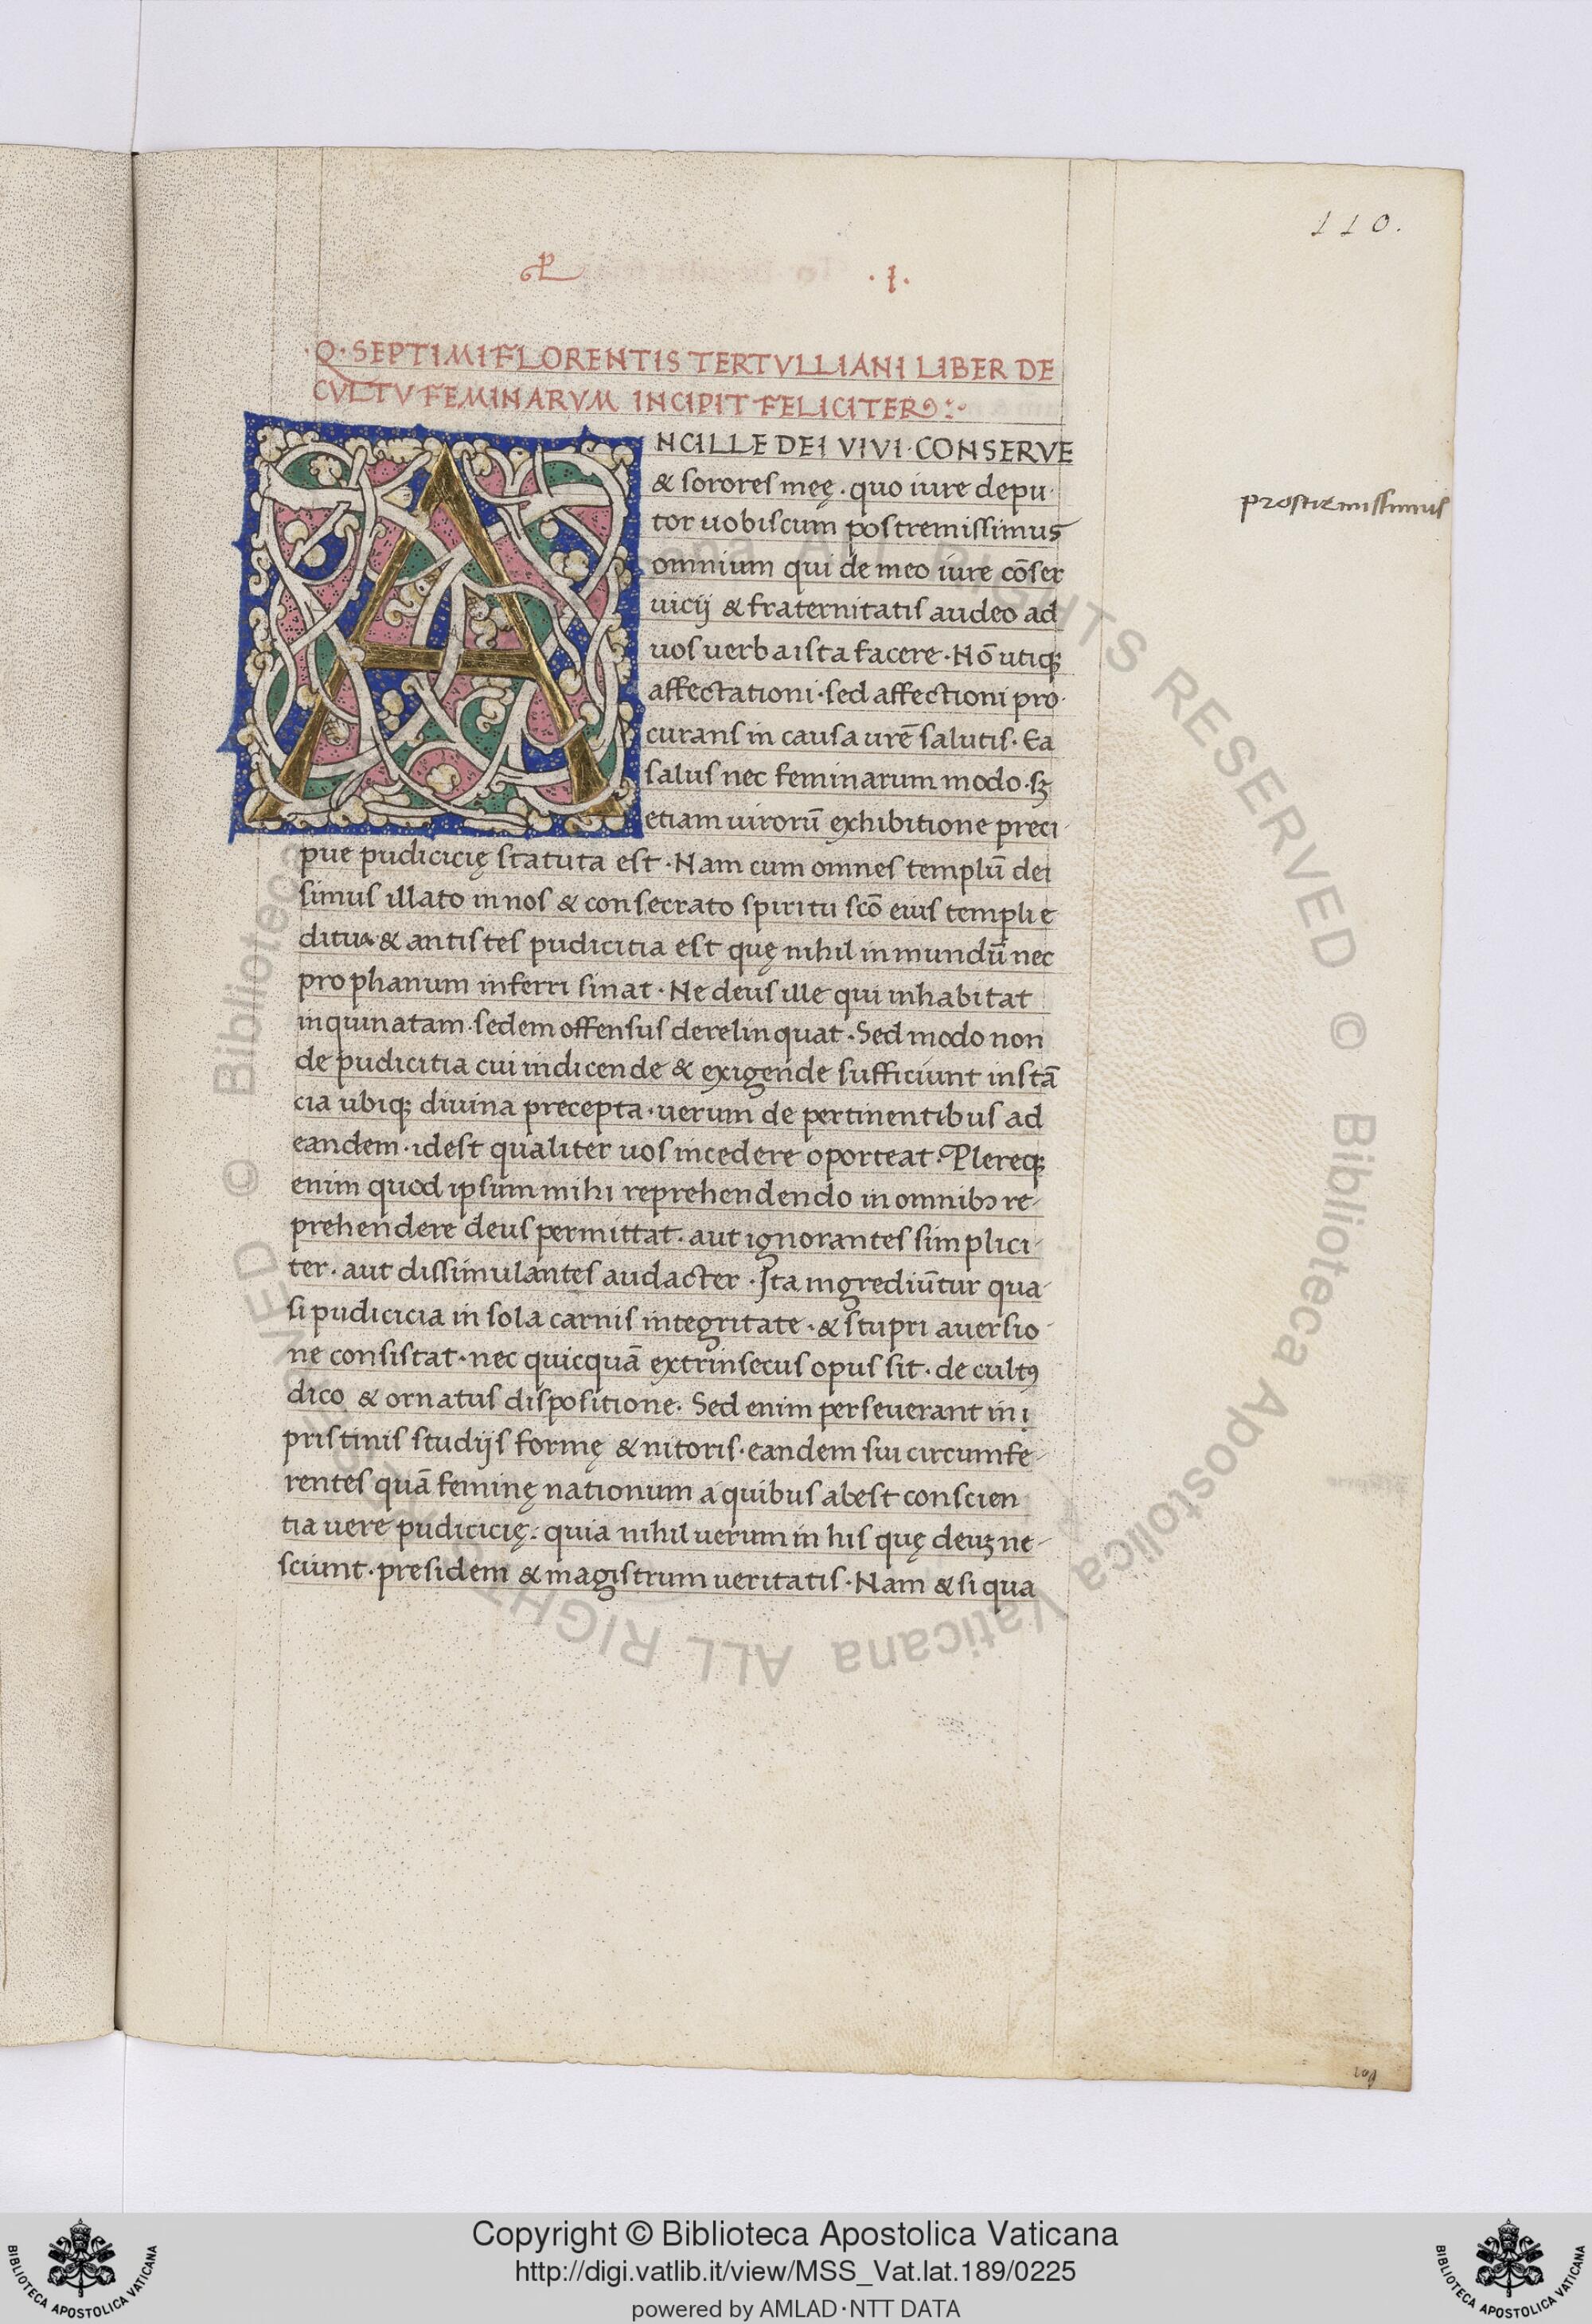 110.
PL .I.
·Q· SEPTIMI FLORENTIS TERTVLLIANI LIBER DE
CVLTV FEMINARVM INCIPIT FELICITER
ANCILLE DEI VIVI·CONSERVE
& sorores meę·quo iure depu·
tor uobiscum postremissimus
prostremissimus
omnium qui de meo iure cōser
uicij & fraternitatis audeo ad
uos uerba ista facere·Nō utiqꝫ
affectationi·sed affectioni pro·
curans in causa urē salutis·Ea
salus nec feminarum modo·sꝫ
etiam uirorū exhibitione preci·
pue pudicicię statuta est·Nam cum omnes templū dei
simus illato in nos & consecrato spiritu scō eius templi e
ditua & antistes pudicitia est quę nihil in mundū nec
prophanum inferri sinat·Ne deus ille qui inhabitat
inquinatam·sedem offensus derelinquat·Sed modo non
de pudicitia cui indicende & exigende sufficiunt instā
cia ubiqꝫ divina precepta·uerum de pertinentibus ad
eandem·idest qualiter uos incedere oporteat·Plereqꝫ
enim quod ipsum mihi reprehendendo in omnibꝫ re-
prehendere deus permittat·aut ignorantes simplici-
ter·aut dissimulantes audacter·Ita ingrediūtur qua-
si pudicicia in sola carnis integritate·& stupri auersio-
ne consistat·nec quicquā extrinsecus opus sit·de cultꝰ
dico & ornatus dispositione·Sed enim perseuerant in i
pristinis studijs formę & nitoris·eandem sui circumfe-
rentes quā feminę nationum a quibus abest conscien
tia uere pudicicię: quia nihil uerum in his quę deuꝫ ne-
sciunt·presidem & magistrum ueritatis·Nam & si qua
© Biblioteca Apostolica Vaticana ALL RIGHTS RESERVED © Biblioteca Apostolica Vaticana ALL RIGHTS RESERVED
Copyright © Biblioteca Apostolica Vaticana
http://digi.vatlib.it/view/MSS_Vat.lat.189/0225
powered by AMLAD·NTT DATA
BIBLIOTECA APOSTOLICA VATICANA
BIBLIOTECA APOSTOLICA VATICANA